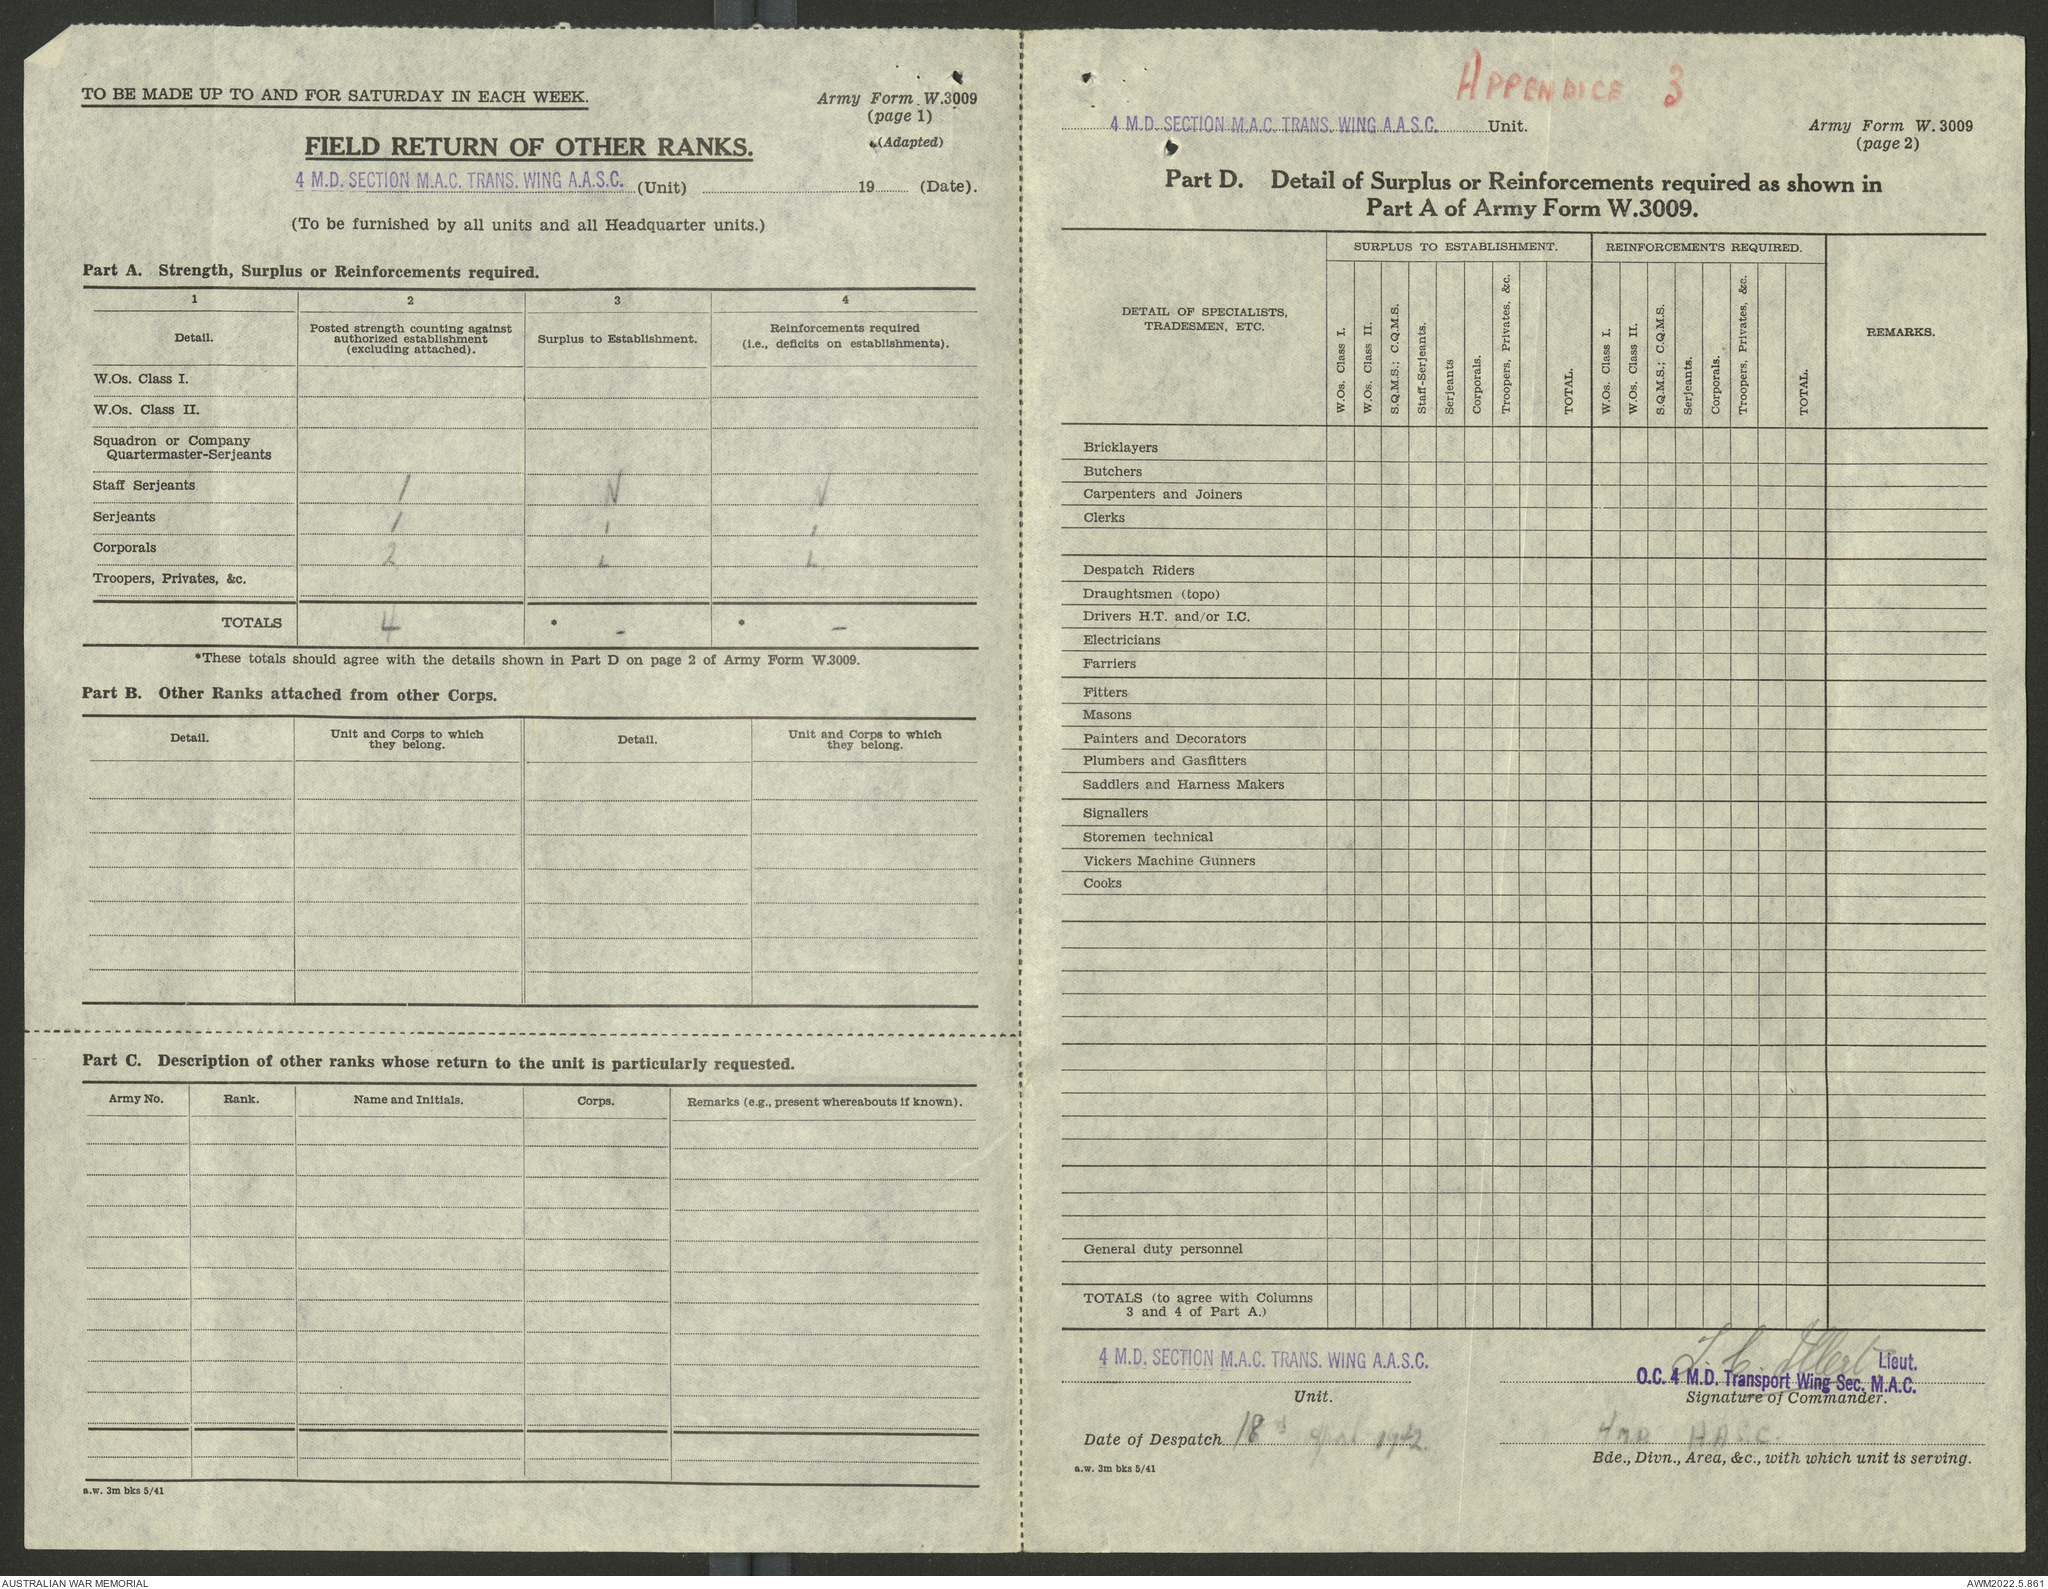 TO BE MADE UP TO AND FOR SATURDAY IN EACH WEEK.
Army Form W.3009
(page 1)
(Adapted)
FIELD RETURN OF OTHER RANKS.
4 M.D. SECTION M.A.C. TRANS. WING A.A.S.C. (Unit) 19 (Date).
(To be furnished by all units and all Headquarter units.)
Part A. Strength, Surplus or Reinforcements required.
1 2 3 4
Detail.
Posted strength counting against
authorized establishment
(excluding attached).
Surplus to Establishment.
Reinforcements required
(i.e., deficits on establishments).
W.Os. Class I.
W.Os. Class II.
Squadron or Company
Quartermaster-Serjeants
Staff Serjeants 1 N N
Serjeants 1 I I
Corporals 2 L L
Troopers, Privates, &c.
TOTALS 4 * - * -
*These totals should agree with the details shown in Part D on page 2 of Army Form W.3009.
Part B. Other Ranks attached from other Corps.
Detail.
Unit and Corps to which
they belong.
Detail.
Unit and Corps to which
they belong.
Part C. Description of other ranks whose return to the unit is particularly requested.
Army No. Rank. Name and Initials. Corps. Remarks (e.g., present whereabouts if known).
a.w. 3m bks 5/41
APPENDICE 3
4 M.D. SECTION M.A.C. TRANS. WING A.A.S.C. Unit.
Army Form W. 3009
(page 2)
Part D. Detail of Surplus or Reinforcements required as shown in
Part A of Army Form W.3009.
DETAIL OF SPECIALISTS,
TRADESMEN, ETC.
SURPLUS TO ESTABLISHMENT.
W.Os. Class I.
W.Os. Class II.
S.Q.M.S.; C.Q.M.S.
Staff-Serjeants.
Serjeants
Corporals.
Troopers, Privates, &c.
TOTAL.
REINFORCEMENTS REQUIRED.
W.Os. Class I.
W.Os. Class II.
S.Q.M.S.; C.Q.M.S.
Serjeants.
Corporals.
Troopers, Privates, &c.
TOTAL.
REMARKS.
Bricklayers
Butchers
Carpenters and Joiners
Clerks
Despatch Riders
Draughtsmen (topo)
Drivers H.T. and/or I.C.
Electricians
Farriers
Fitters
Masons
Painters and Decorators
Plumbers and Gasfitters
Saddlers and Harness Makers
Signallers
Storemen technical
Vickers Machine Gunners
Cooks
General duty personnel
TOTALS (to agree with Columns
3 and 4 of Part A.)
4 M.D. SECTION M.A.C. TRANS. WING A.A.S.C.
Unit.
Lieut.
O.C. 4 M.D. Transport Wing Sec. M.A.C.
Signature of Commander.
Date of Despatch 18 April 1942.
4 MD
Bde., Divn., Area, &c., with which unit is serving.
a.w. 3m bks 5/41
AUSTRALIAN WAR MEMORIAL
AWM2022.5.861